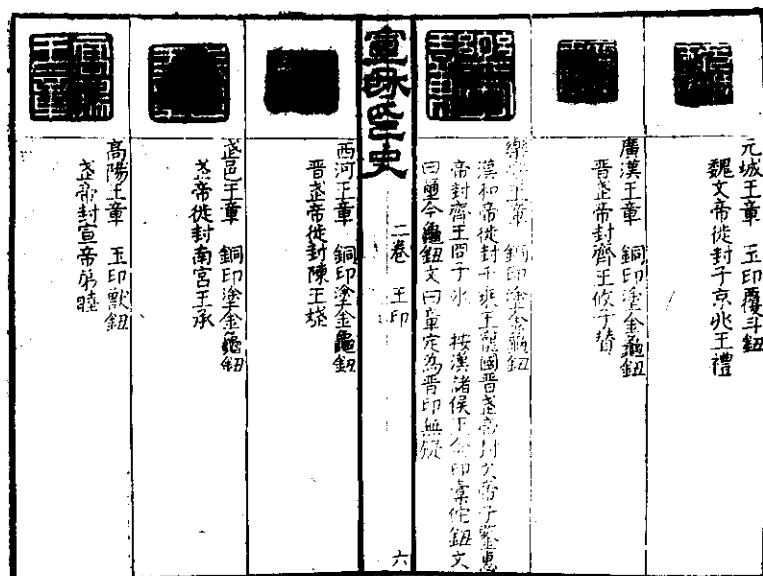 元城王章　玉印覆斗鈕
魏文帝徙封子京兆王禮
廣漢王章　銅印塗金龜鈕
晉武帝封齊王攸子贊
樂安王章　銅印塗金龜鈕
漢和帝徙封千乘王寵國晉武帝封文帝子鑒惠
帝封齊王冏子冰　按漢諸侯王金印橐佗鈕文
曰璽今龜鈕文曰章定為晉印無疑
宣和印史
二卷　王印
六
西河王章　銅印塗金龜鈕
晉武帝徙封陳王斌
武邑王章　銅印塗金龜鈕
武帝徙封南宮王承
高陽王章　玉印獸鈕
武帝封宣帝弟睦